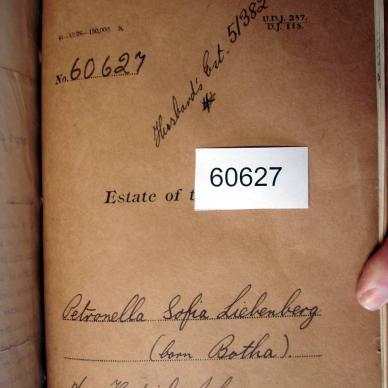 U.D.J. 287.
D.J. 118.
No. 60627
Husband's Est. 51382
60627
Estate of
Petronella Sofia Liebenberg
(born Botha).